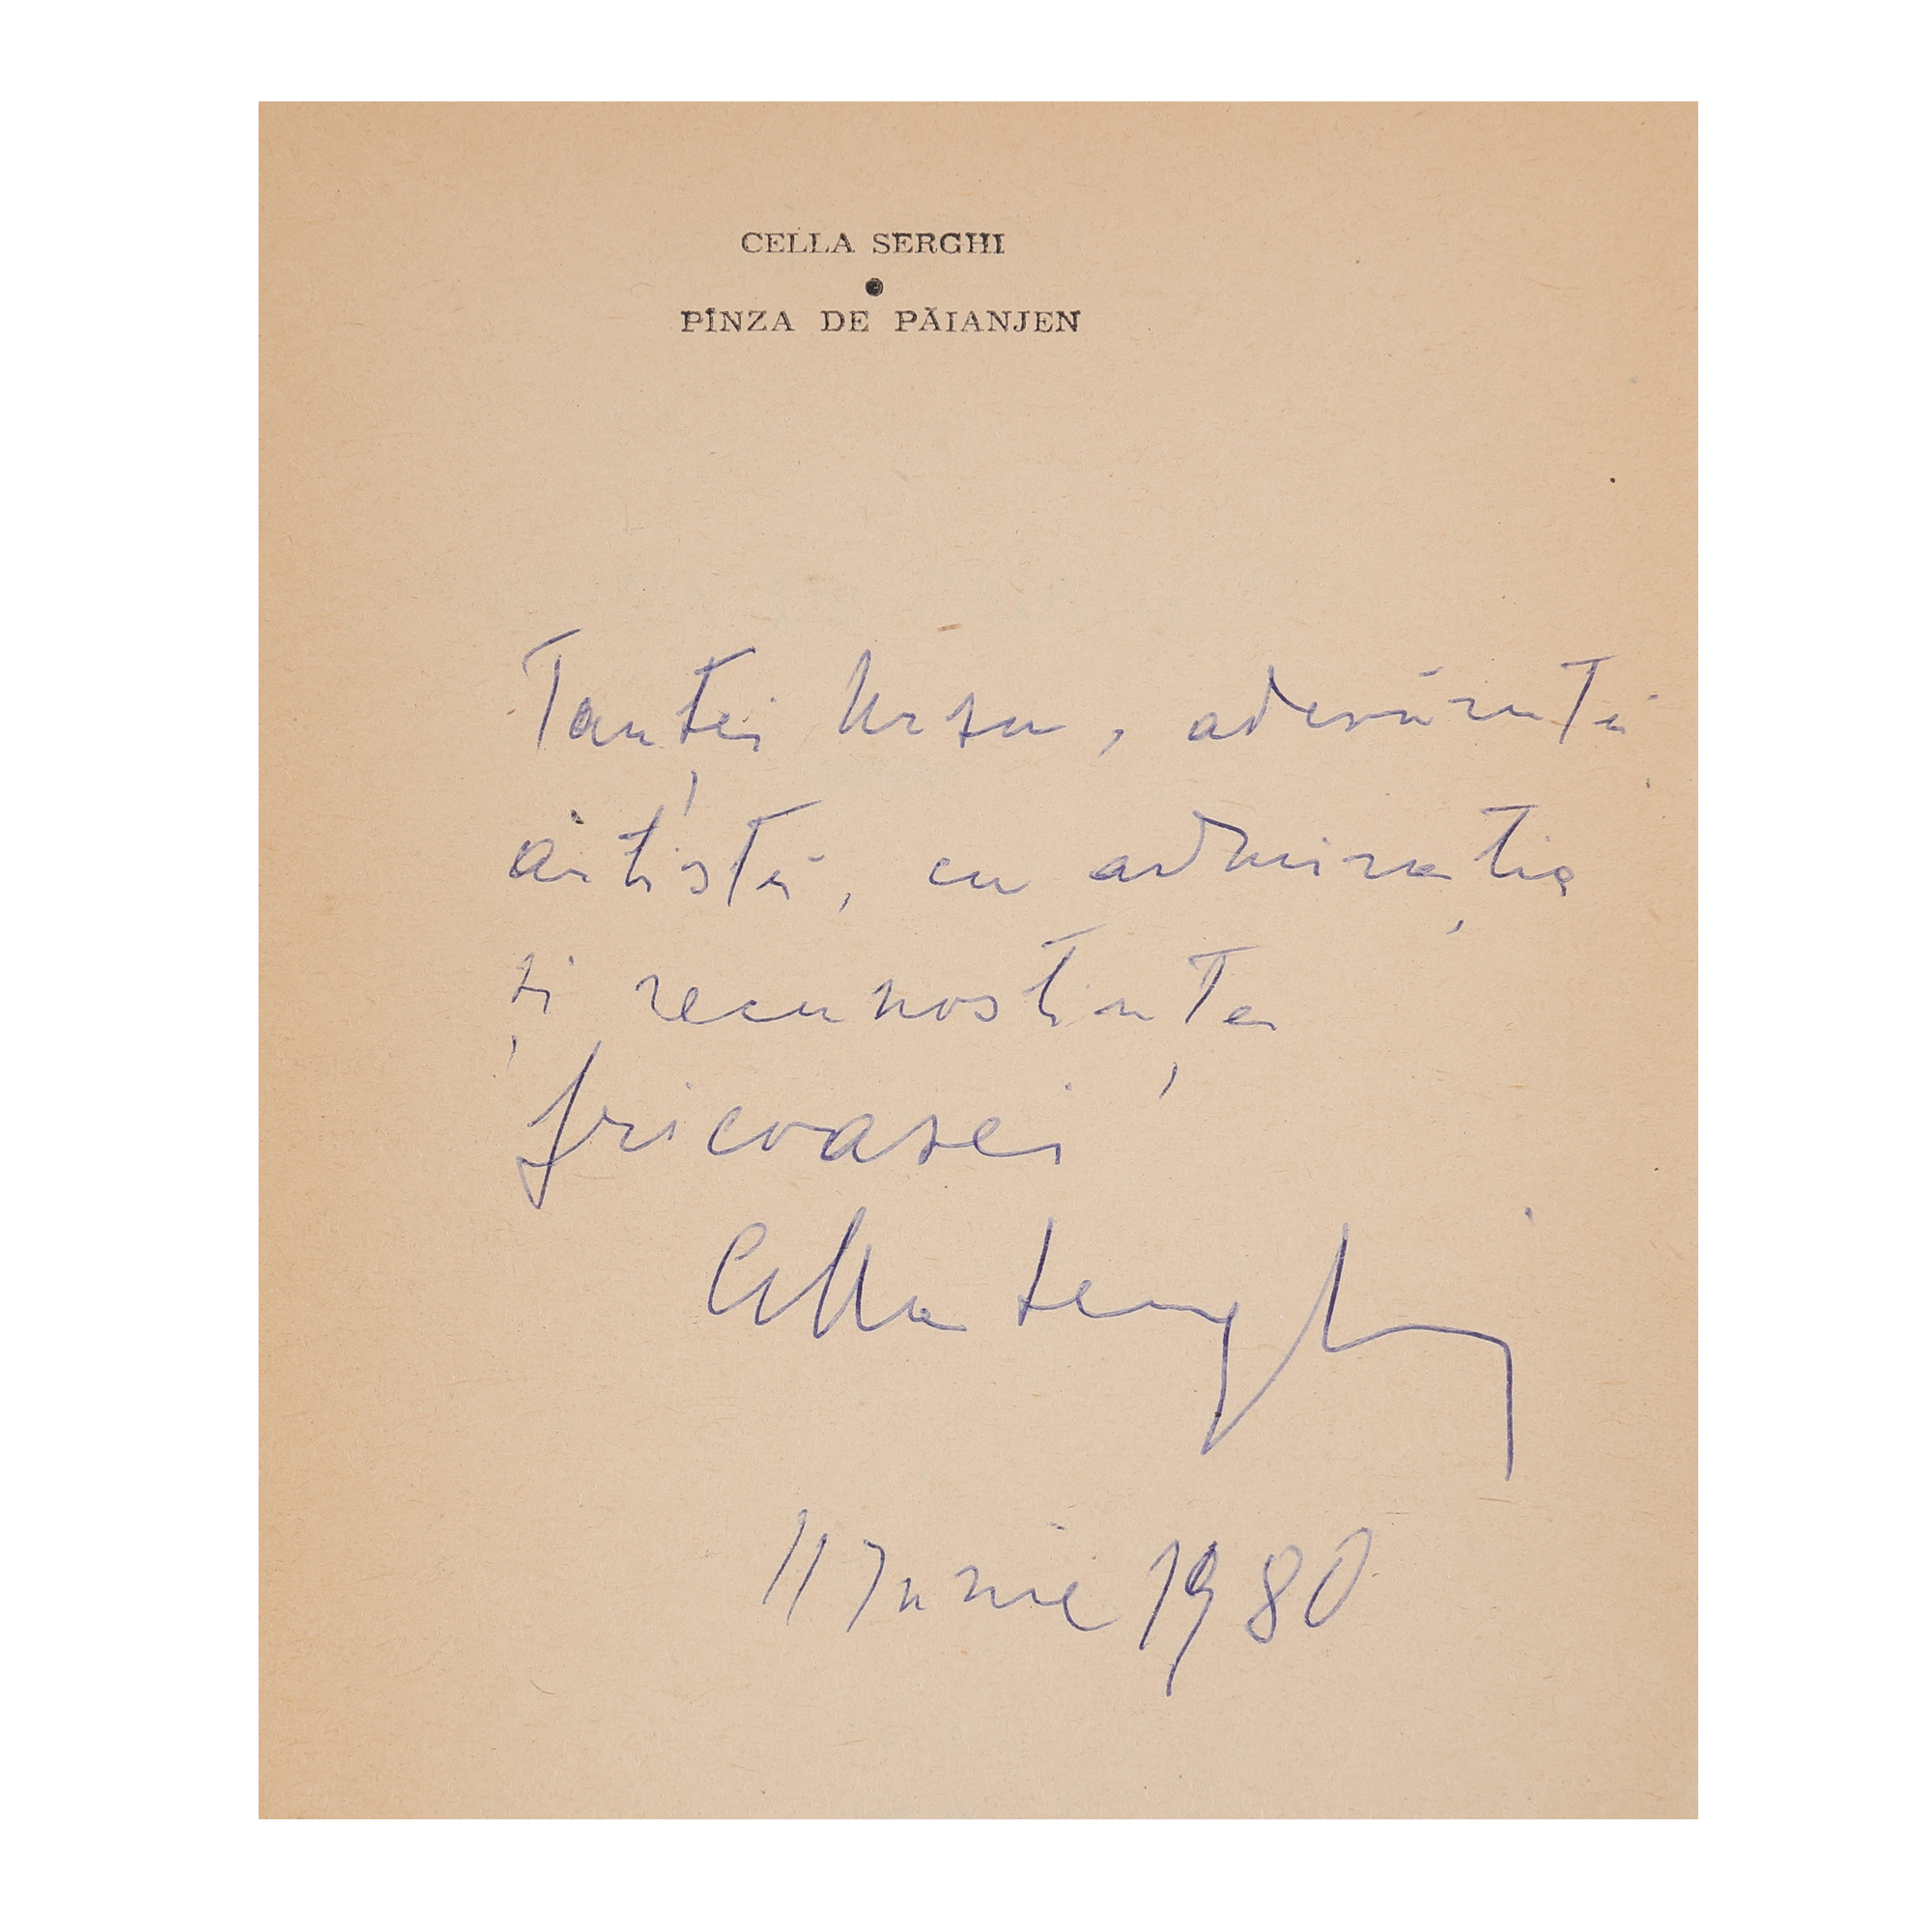 CELLA SERGHI
●
PÎNZA DE PĂIANJEN
Tanței Ursu, adevărată
artistă, cu admirația
și recunoștința
fricoasei
Cella Serghi
11 Iunie 1980